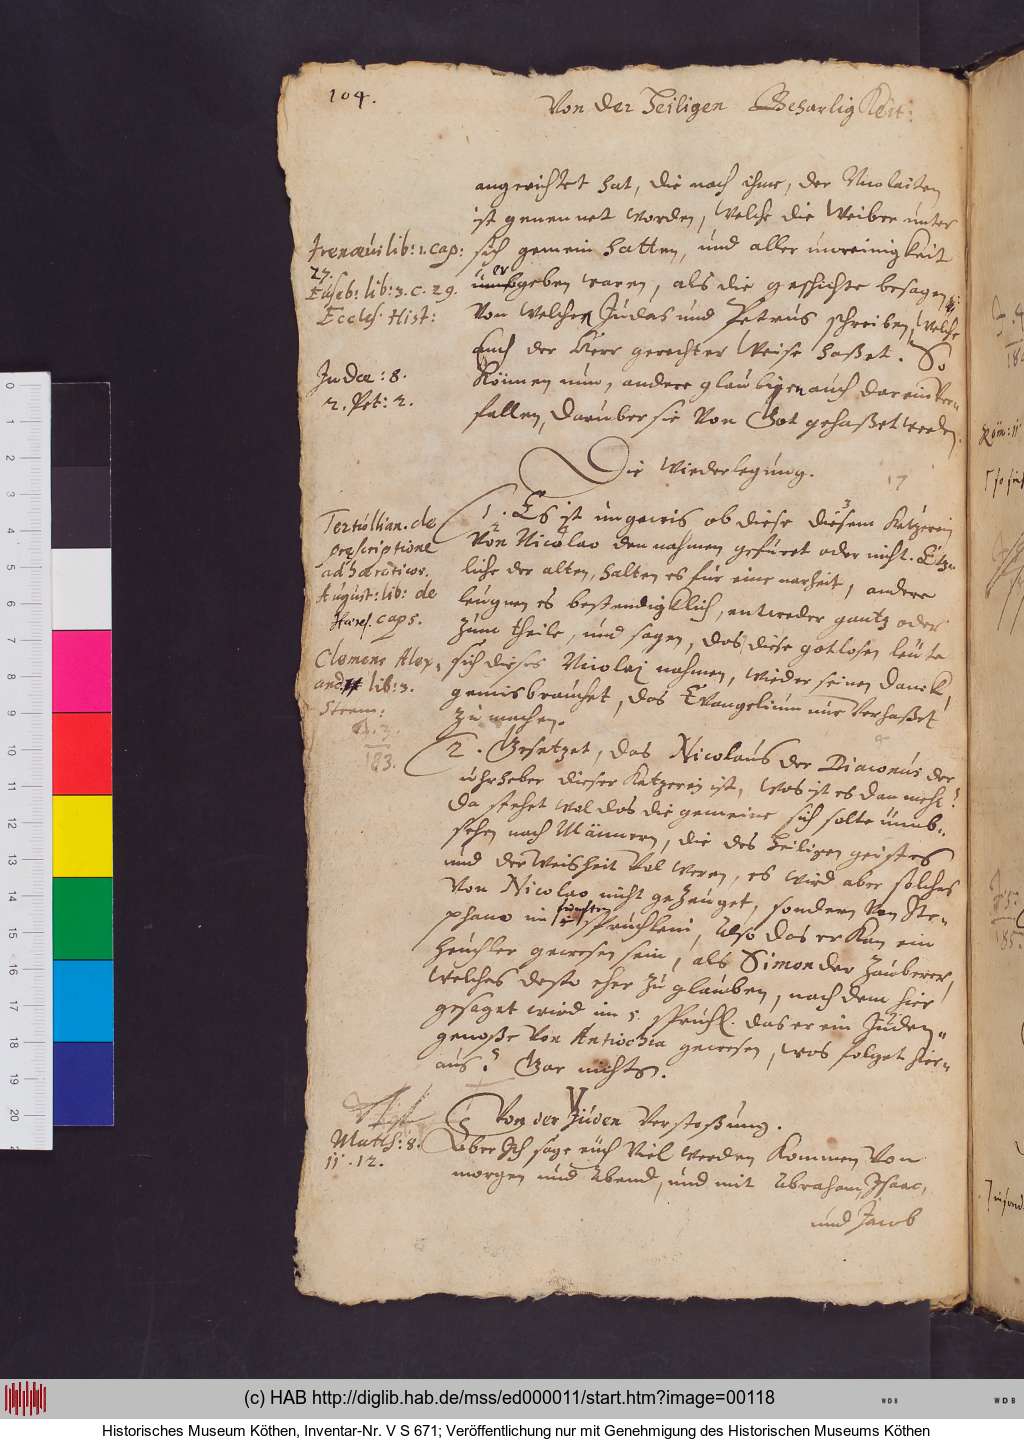 104.
Von der Heiligen Beharligkeit:
angerichtet hat, die nach ihme, der Nicolaiten
ist genennet worden, welche die Weiber unter
sich gemein hatten, und aller unreinigkeit
ergeben waren, als die geschichte besagen
von welchen Judas und Petrus schreiben, welche
auch der Herr gerechter Weise haßet. So
Können nun, andere glaubigen auch darein ver-
fallen, darüber sie von Got gehaßet werden.
Irenæus lib: 1. cap:
27.
Euseb: lib: 3. c. 29.
Eccles. Hist:
Judæ: 8.
2. Pet: 2.
Die Wiederlegung.
1. Es ist ungewis ob diese diesem Ketzerein
von Nicolao den nahmen gefüret oder nicht. Etz-
liche der alten, halten es für eine narheit, andere
leugnen es bestendigklich, entweder gantz oder
zum theile, und sagen, das diese gotlosen leute
sich dieses Nicolaj nahmen, wieder seinen danck,
gemisbrauchet, das Evangelium nur verhaßet
zu machen.
Tertullian. de
præscriptione
ad hæreticos.
August: lib: de
Hæres. cap 5.
Clemens Alex-
and. lib: 3.
Strom:
183.
2. Gesetzet, das Nicolaus der Diaconus der
uhrheber dieser Ketzerej ist, was ist es dan mehr?
da stehet wol das die gemeine sich solte umb-
sehen nach Männern, die des Heiligen geistes
und der Weisheit vol weren, es wird aber solches
von Nicolao nicht gezeuget, sondern von Ste-
phano im fünften sprüchlein, Also das er kan ein
heuchler gewesen sein, als Simon der Zauberer,
welches desto eher zu glauben, nach dem hier
gesaget wird im 5. sprüchl. das er ein Juden-
genoße von Antiochia gewesen, was folget hier-
aus? Gar nichts.
V
Von der Juden Verstoßung.
Matth: 8.
11. 12.
Aber Ich sage euch Viel werden kommen von
morgen und Abend, und mit Abraham, Isaac,
und Jacob
(c) HAB http://diglib.hab.de/mss/ed000011/start.htm?image=00118
WDB
WDB
Historisches Museum Köthen, Inventar-Nr. V S 671; Veröffentlichung nur mit Genehmigung des Historischen Museums Köthen